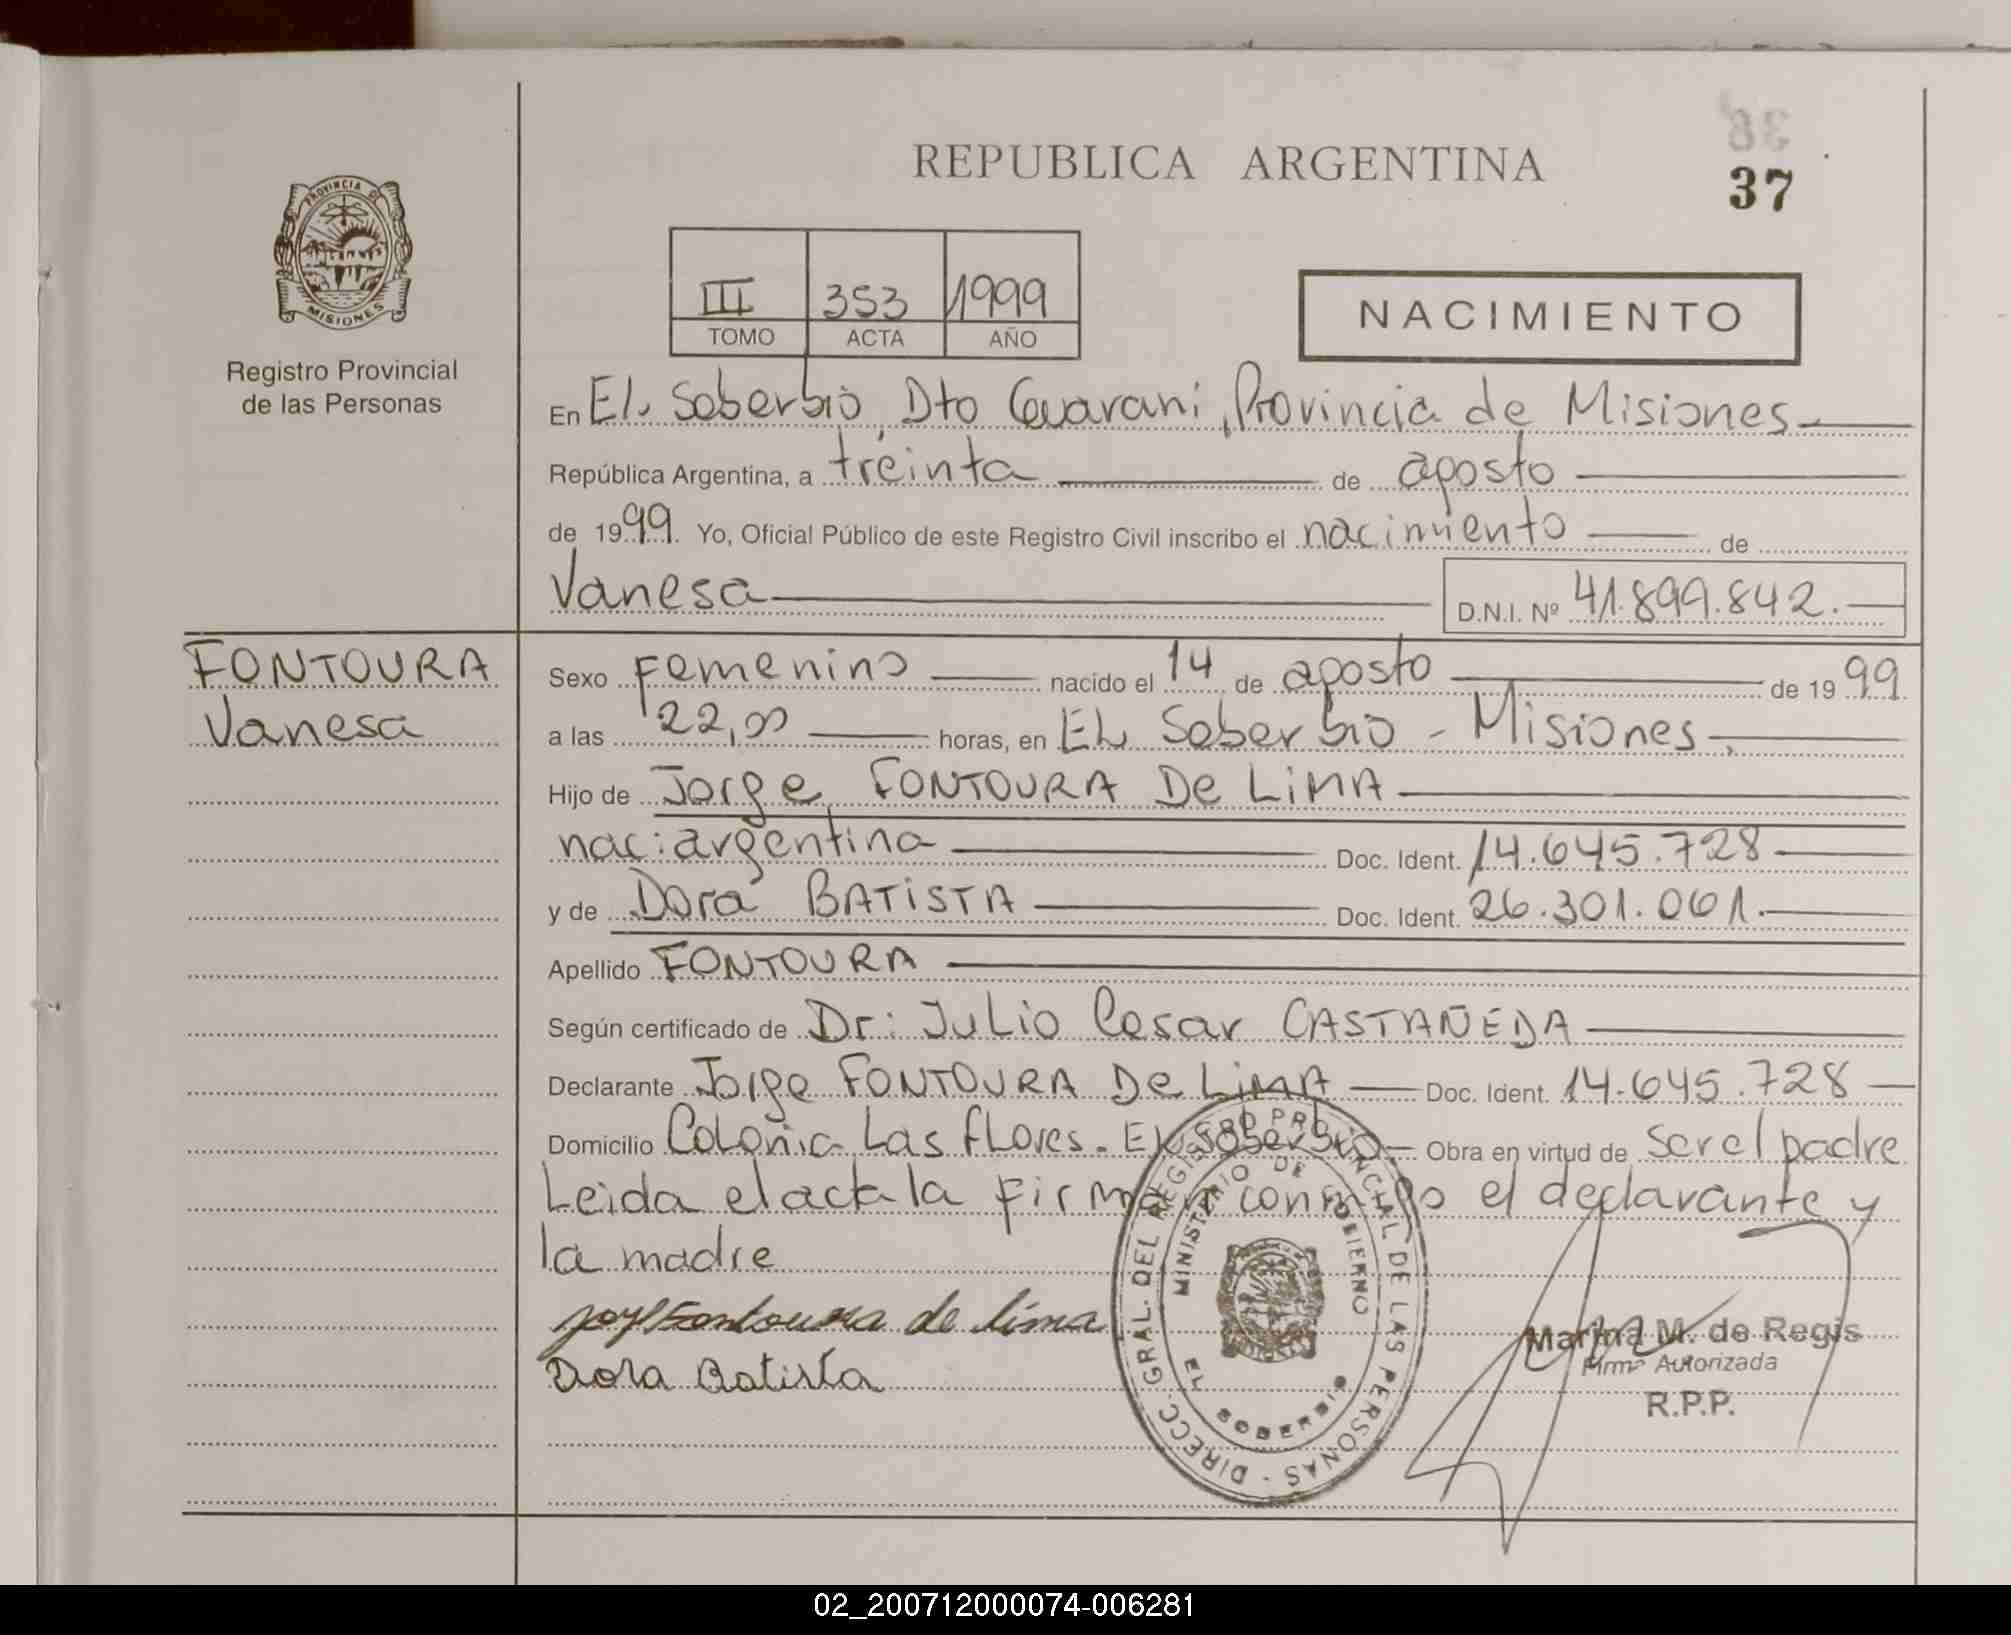 REPUBLICA ARGENTINA
37
PROVINCIA DE
MISIONES
Registro Provincial
de las Personas
III 353 1999
TOMO ACTA AÑO
NACIMIENTO
En EL Soberbio, Dto Guarani, Provincia de Misiones
República Argentina, a treinta de agosto
de 1999. Yo, Oficial Público de este Registro Civil inscribo el nacimiento de
Vanesa D.N.I. Nº 41.899.842.
FONTOURA
Vanesa
Sexo Femenino nacido el 14 de agosto de 1999
a las 22,00 horas, en EL Soberbio - Misiones.
Hijo de Jorge FONTOURA De LiMA
nac: argentina Doc. Ident. 14.645.728
y de Dora BATiSTA Doc. Ident. 26.301.061.
Apellido FONTOURA
Según certificado de Dr: Julio Cesar CASTAÑEDA
Declarante Jorge FONTOURA De LiMA Doc. Ident. 14.645.728
Domicilio Colonia Las Flores. EL Soberbio Obra en virtud de ser el padre
Leida el acta la firman conmigo el declarante y
la madre
Fontoura de lima
Dora Batista
DIRECC. GRAL. DEL REGISTRO PROVINCIAL DE LAS PERSONAS -
MINISTERIO DE GOBIERNO
EL SOBERBIO
Marina M. de Regis
Firma Autorizada
R.P.P.
02_200712000074-006281